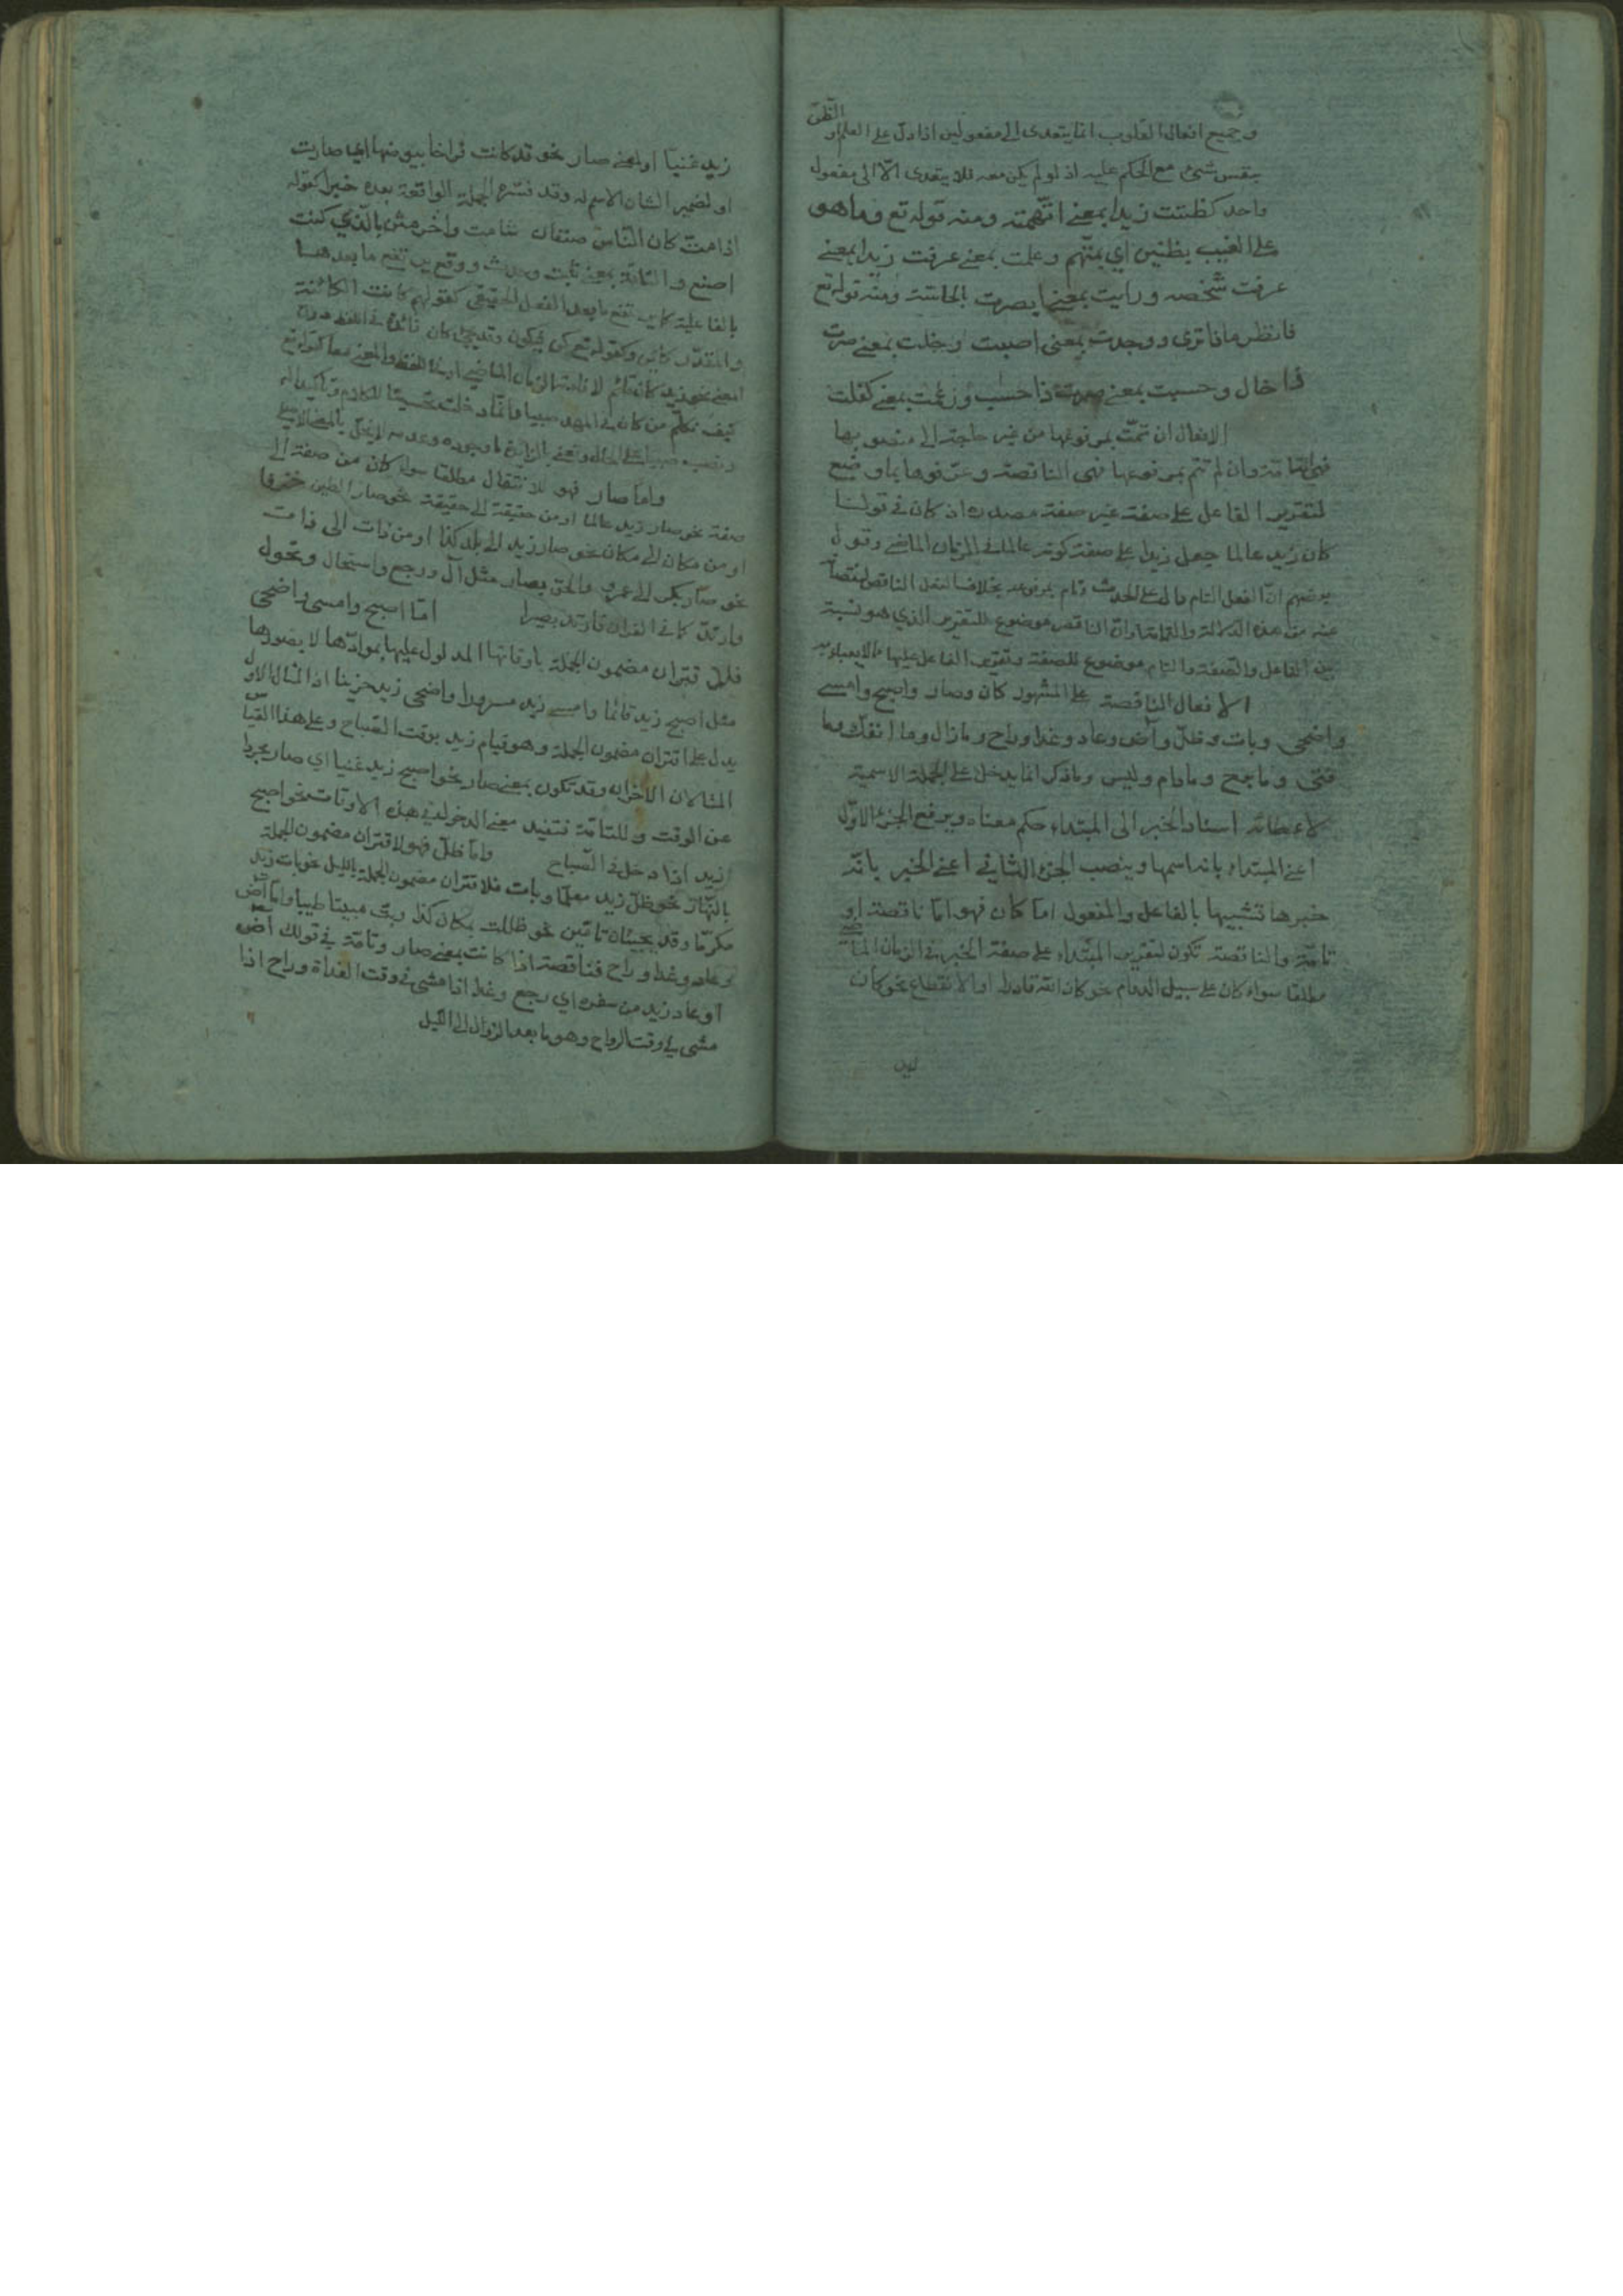 وجميع افعال القلوب انما يتعدى الى مفعولين اذا دل على العلم او الظن
بنفس شئ مع الحكم عليه اذ لو لم يكن معه فلا يتعدى الا الى مفعول
واحد كظننت زيدا بمعنى اتهمته ومنه قوله تع وما هو
على الغيب بظنين اي بمتهم وعلمت بمعنى عرفت زيدا بمعنى
عرفت شخصه ورايت بمعنى ابصرت بالحاسة ومنه قوله تع
فانظر ماذا ترى ووجدت بمعنى اصبت وخلت بمعنى صرت
ذا خال وحسبت بمعنى صرت ذا حسب وزعمت بمعنى كفلت
الافعال ان تمت بمرفوعها من غير حاجة الى منصوبها
فهي التامة وان لم تتم بمرفوعها فهي الناقصة وعرفوها بما وضع
لتقرير الفاعل على صفة غير صفة مصدره اذ كان في قولنا
كان زيد عالما جعل زيدا على صفة كونه عالما في الزمان الماضي وقول
بعضهم ان الفعل التام دال على الحدث وتام بمرفوعه بخلاف الفعل الناقص
عنه من هذه الدلالة والتمامة وان الناقص موضوع للتقرير الذي هو نسبة
بين الفاعل والصفة والتام موضوع للصفة وتقرير الفاعل عليها
الافعال الناقصة على المشهور كان وصار واصبح وامسى
واضحى وبات وظل وآض وعاد وغدا وراح وما زال وما انفك وما
فتئ وما برح وما دام وليس وما ذكر انما يدخل على الجملة الاسمية
لاعطائه اسناد الخبر الى المبتداء حكم معناه ويرفع الجزء الاول
اعني المبتداء بانه اسمها وينصب الجزء الثاني اعني الخبر بانه
خبرها تشبيها بالفاعل والمفعول اما كان فهو اما ناقصة او
تامة والناقصة تكون لتقرير المبتداء على صفة الخبر في الزمان الماضي
مطلقا سواء كان على سبيل الدوام نحو كان الله قادرا او الانقطاع نحو كان
زيد
زيد غنيا او بمعنى صار نحو قد كانت فراخا بيوضها اي صارت
او لضمير الشان الاسم له وقد فسره الجملة الواقعة بعده خبرا كقوله
اذا مت كان الناس صنفان شامت وآخر مثن بالذي كنت
اصنع والتامة بمعنى ثبت وحدث ووقع يرتفع ما بعدها
بالفاعلية كما يرتفع ما بعد الفعل الحقيقي كقولهم كانت الكائنة
والمقدر كائن وكقوله تع كن فيكون وقد يجئ كان زائدة في اللفظ دون
المعنى نحو زيد كان قائم لافادتها الزمان الماضي او في اللفظ والمعنى معا كقوله تع
كيف نكلم من كان في المهد صبيا وانما دخلت تحسينا للكلام وتاكيدا له
ونصب صبيا على الحال ونعني بالزائد ما وجوده وعدمه لا يخل بالمعنى الاصلي
واما صار فهو للانتقال مطلقا سواء كان من صفة الى
صفة نحو صار زيد عالما او من حقيقة الى حقيقة نحو صار الطين خزفا
او من مكان الى مكان نحو صار زيد الى بلد كذا او من ذات الى ذات
نحو صار بكر الى عمرو والحق بصار مثل آل ورجع واستحال وتحول
وارتد كما في القران فارتد بصيرا اما اصبح وامسى واضحى
فلاقتران مضمون الجملة باوقاتها المدلول عليها بموادها لا بصورها
مثل اصبح زيد قائما وامسى زيد مسرورا واضحى زيد حزينا اذ المثال الاول
يدل على اقتران مضمون الجملة وهو قيام زيد بوقت الصباح وعلى هذا القياس
المثالان الاخران وقد تكون بمعنى صار نحو اصبح زيد غنيا اي صار مجردا
عن الوقت وللتامة فتفيد معنى الدخول في هذه الاوقات نحو اصبح
زيد اذا دخل في الصباح واما ظل فهو لاقتران مضمون الجملة
بالنهار نحو ظل زيد معلما وبات فلاقتران مضمون الجملة بالليل نحو بات زيد
مكرما وقد يجيئان تامتين نحو ظللت بمكان كذا وبت مبيتا طيبا واما آض
وعاد وغدا وراح فناقصة اذا كانت بمعنى صار وتامة في قولك آض
او عاد زيد من سفره اي رجع وغدا اذا مشى في وقت الغداة وراح اذا
مشى في وقت الرواح وهو ما بعد الزوال الى الليل